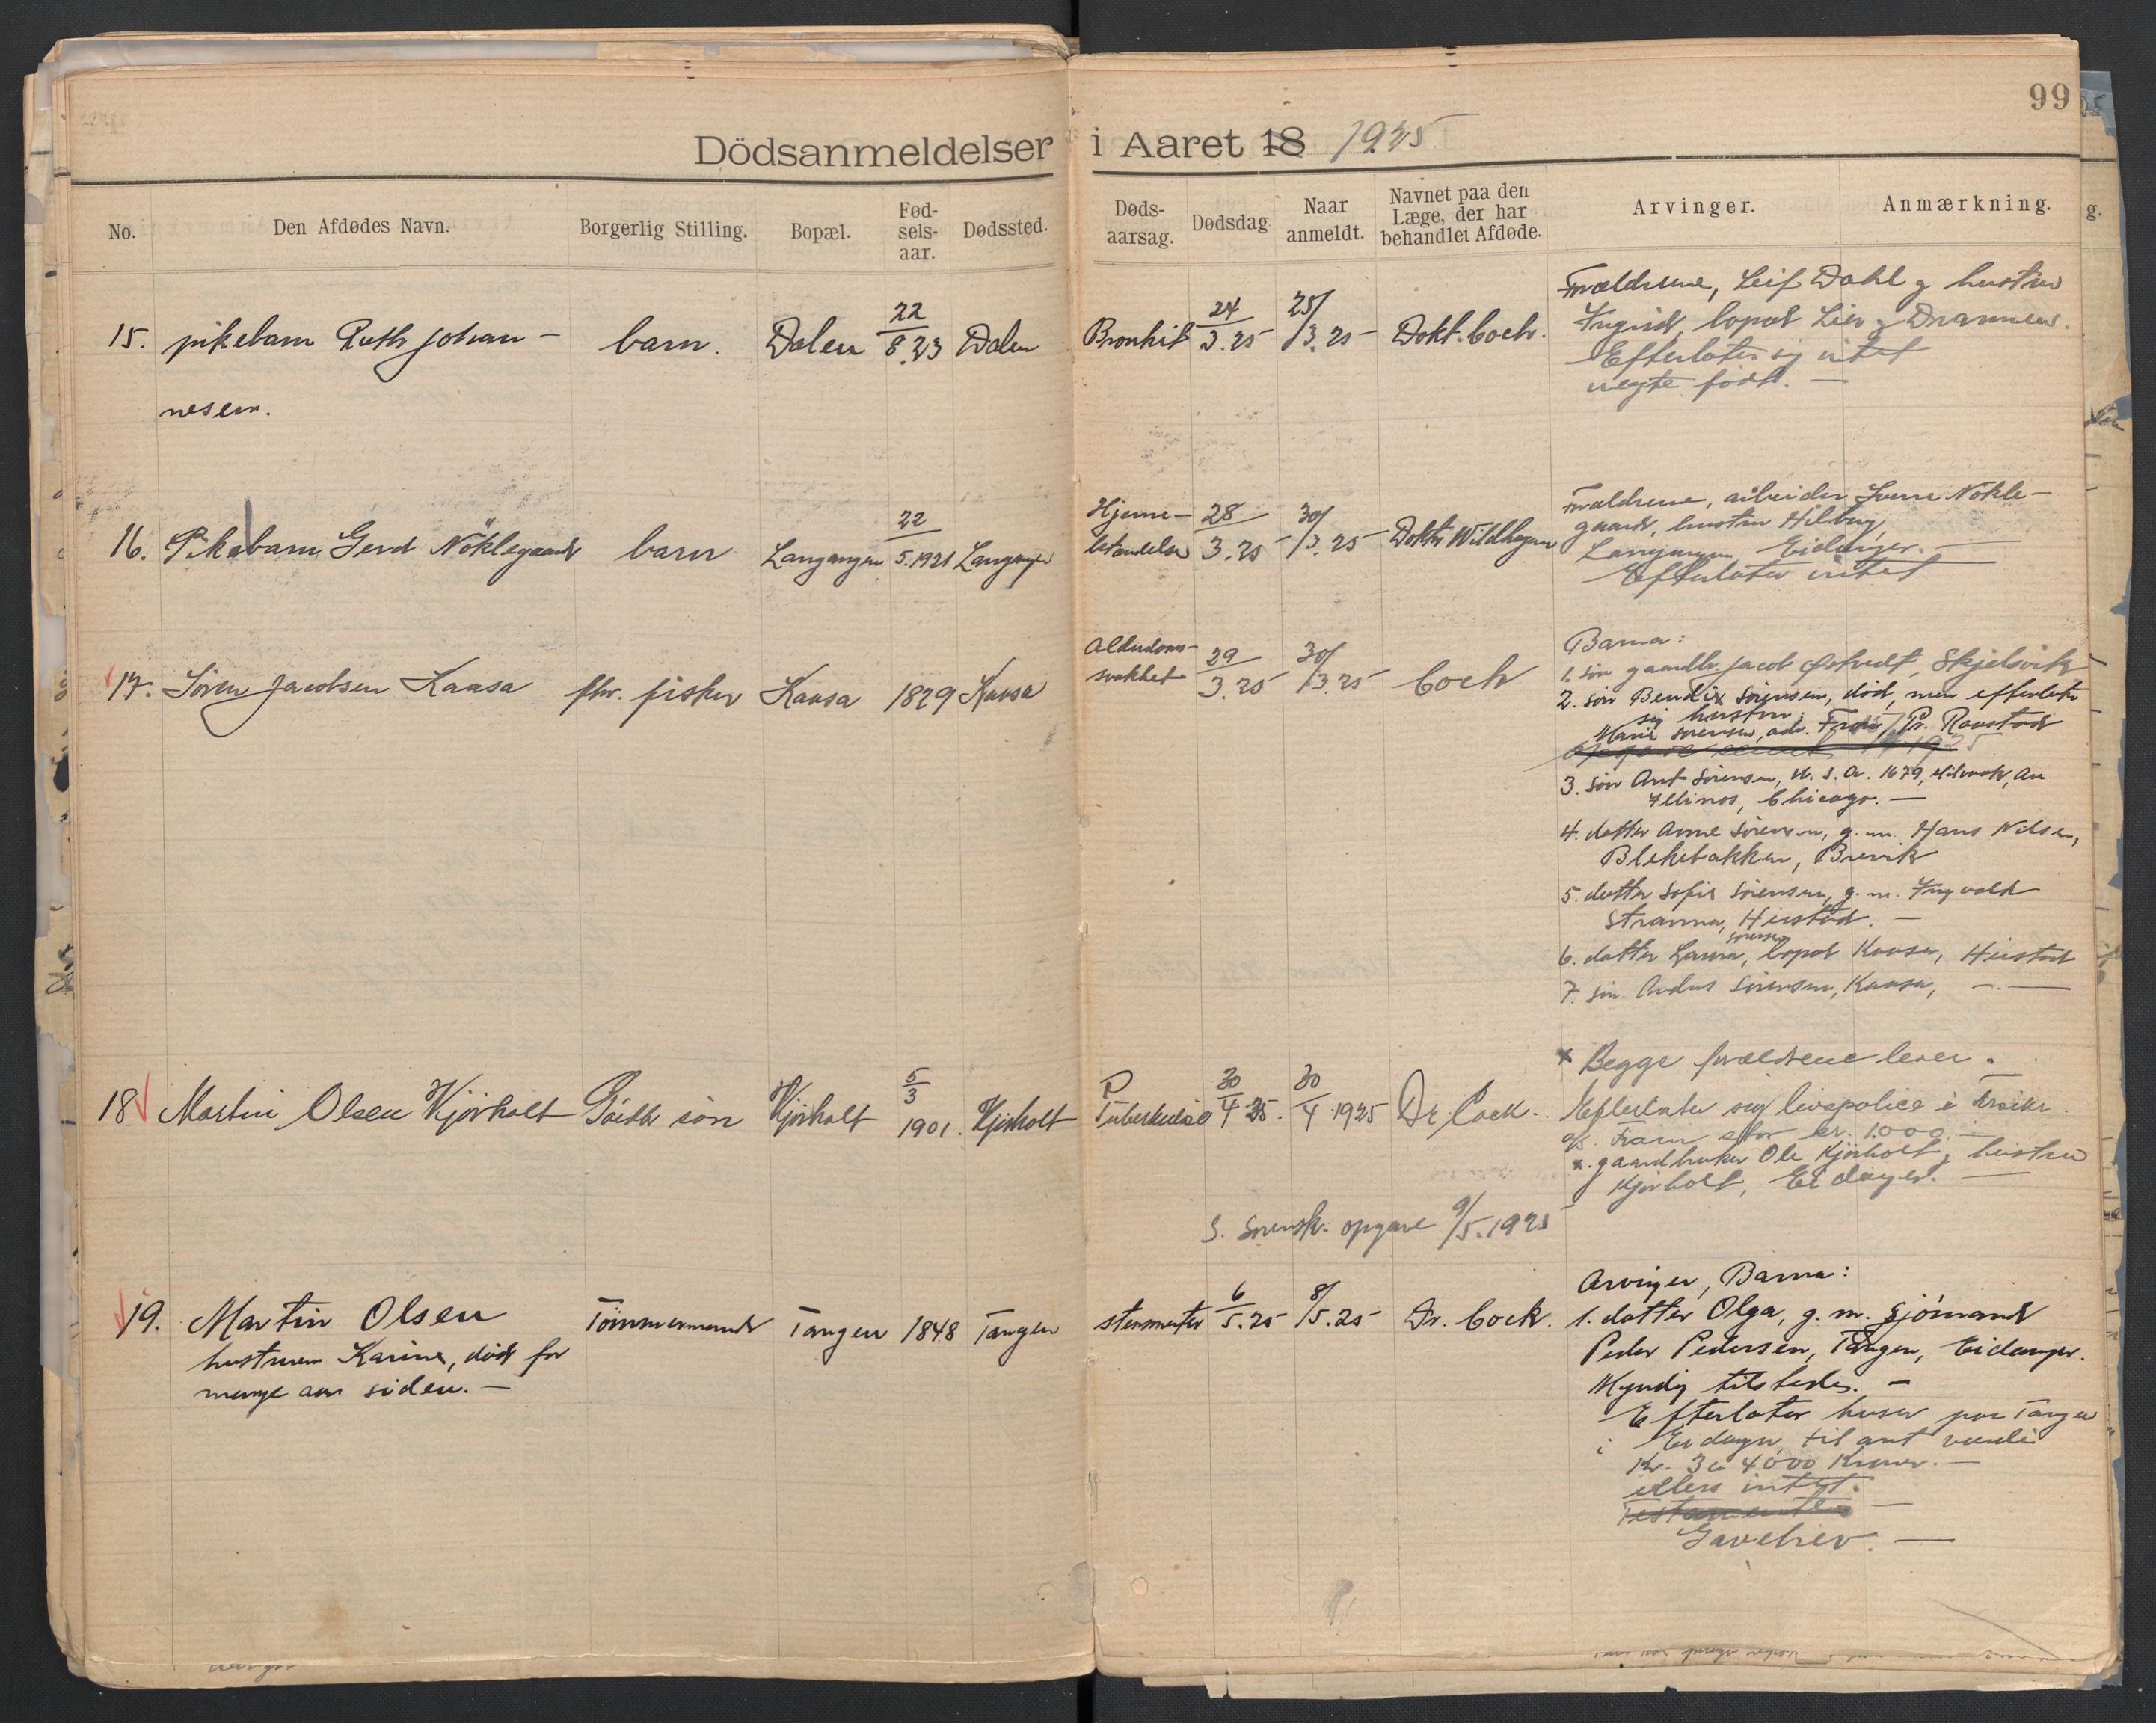 99
Dödsanmeldelser i Aaret 18 1925
No. Den Afdødes Navn. Borgerlig Stilling. Bopæl. Fød-sels-aar. Dødssted. Døds-aarsag. Dødsdag Naar anmeldt. Navnet paa den Læge, der har behandlet Afdøde. Arvinger. Anmærkning.
15. pikebarn Ruth Johan-
nesen.
barn. Dalen 22/8.23 Dalen Bronkit 24/3.25 25/3.25 Dokt. Coch.
Forældrene, Leif Dahl og hustru
Ingrid, bopæl Lier og Drammen.
Efterlater sig intet
uegte født. —
16. Pikebarn Gerd Nöklegaard barn Langangen 22/5.1921 Langangen
Hjerne-
betændelse 28/3.25 30/3.25 Doktor Wildhagen
Forældrene, arbeider Sverre Nökle-
gaard, hustru
Langangen, Eidanger.
Efterlater intet
17. Sören Jacobsen Kaasa fhv. fisker Kaasa 1829 Kaasa
Alderdoms-
svakhet 29/3.25 30/3.25 Coch
Barna:
1. søn gaardbr. Jacob Skjelsvik
2. søn Bendix Sörensen, död, men efterlater
sig hustru:
Marie Sörensen, adr. Pr. Raastad
3. søn Ant Sörensen, U. S. A. 1679, Milwauk, Av
Illinos, Chicago. —
4. datter Anne Sörensen, g. m. Hans Nilsen,
Blekebakken, Brevik
5. datter Sofie Sörensen, g. m. Ingvald
Stranna, Heistad. —
6. datter Laura Sörensen, bopæl Kaasa, Heistad
7. søn Anders Sörensen, Kaasa, —.—
18 Martin Olsen Kjörholt Gaardbr. sön Kjörholt 5/3 1901. Kjörholt
Tuberkulose 30/4 25. 30/4 1925 Dr. Cock.
x Begge forældrene lever.
Efterlater sig livspolice i
Fram stor kr. 1.000. —
x. gaardbruker Ole Kjörholt og hustru
Kjörholt, Eidanger. —
S. Sorensk. opgave 9/5.1925
19. Martin Olsen
hustruen Karine, död for
mange aar siden. —
Tömmermand Tangen 1848 Tangen 6/5.25 8/5.25 Dr. Cock.
Arvinger, Barna:
1. datter Olga, g. m. Sjömand
Peder Pedersen, Tangen, Eidanger.
Myndig tilstede. —
Efterlater huser paa Tangen
i Eidanger til ant værdi
Kr. 3 a 4000 Kroner. —
ellers intet.
Testamente —
Gavebrev. —